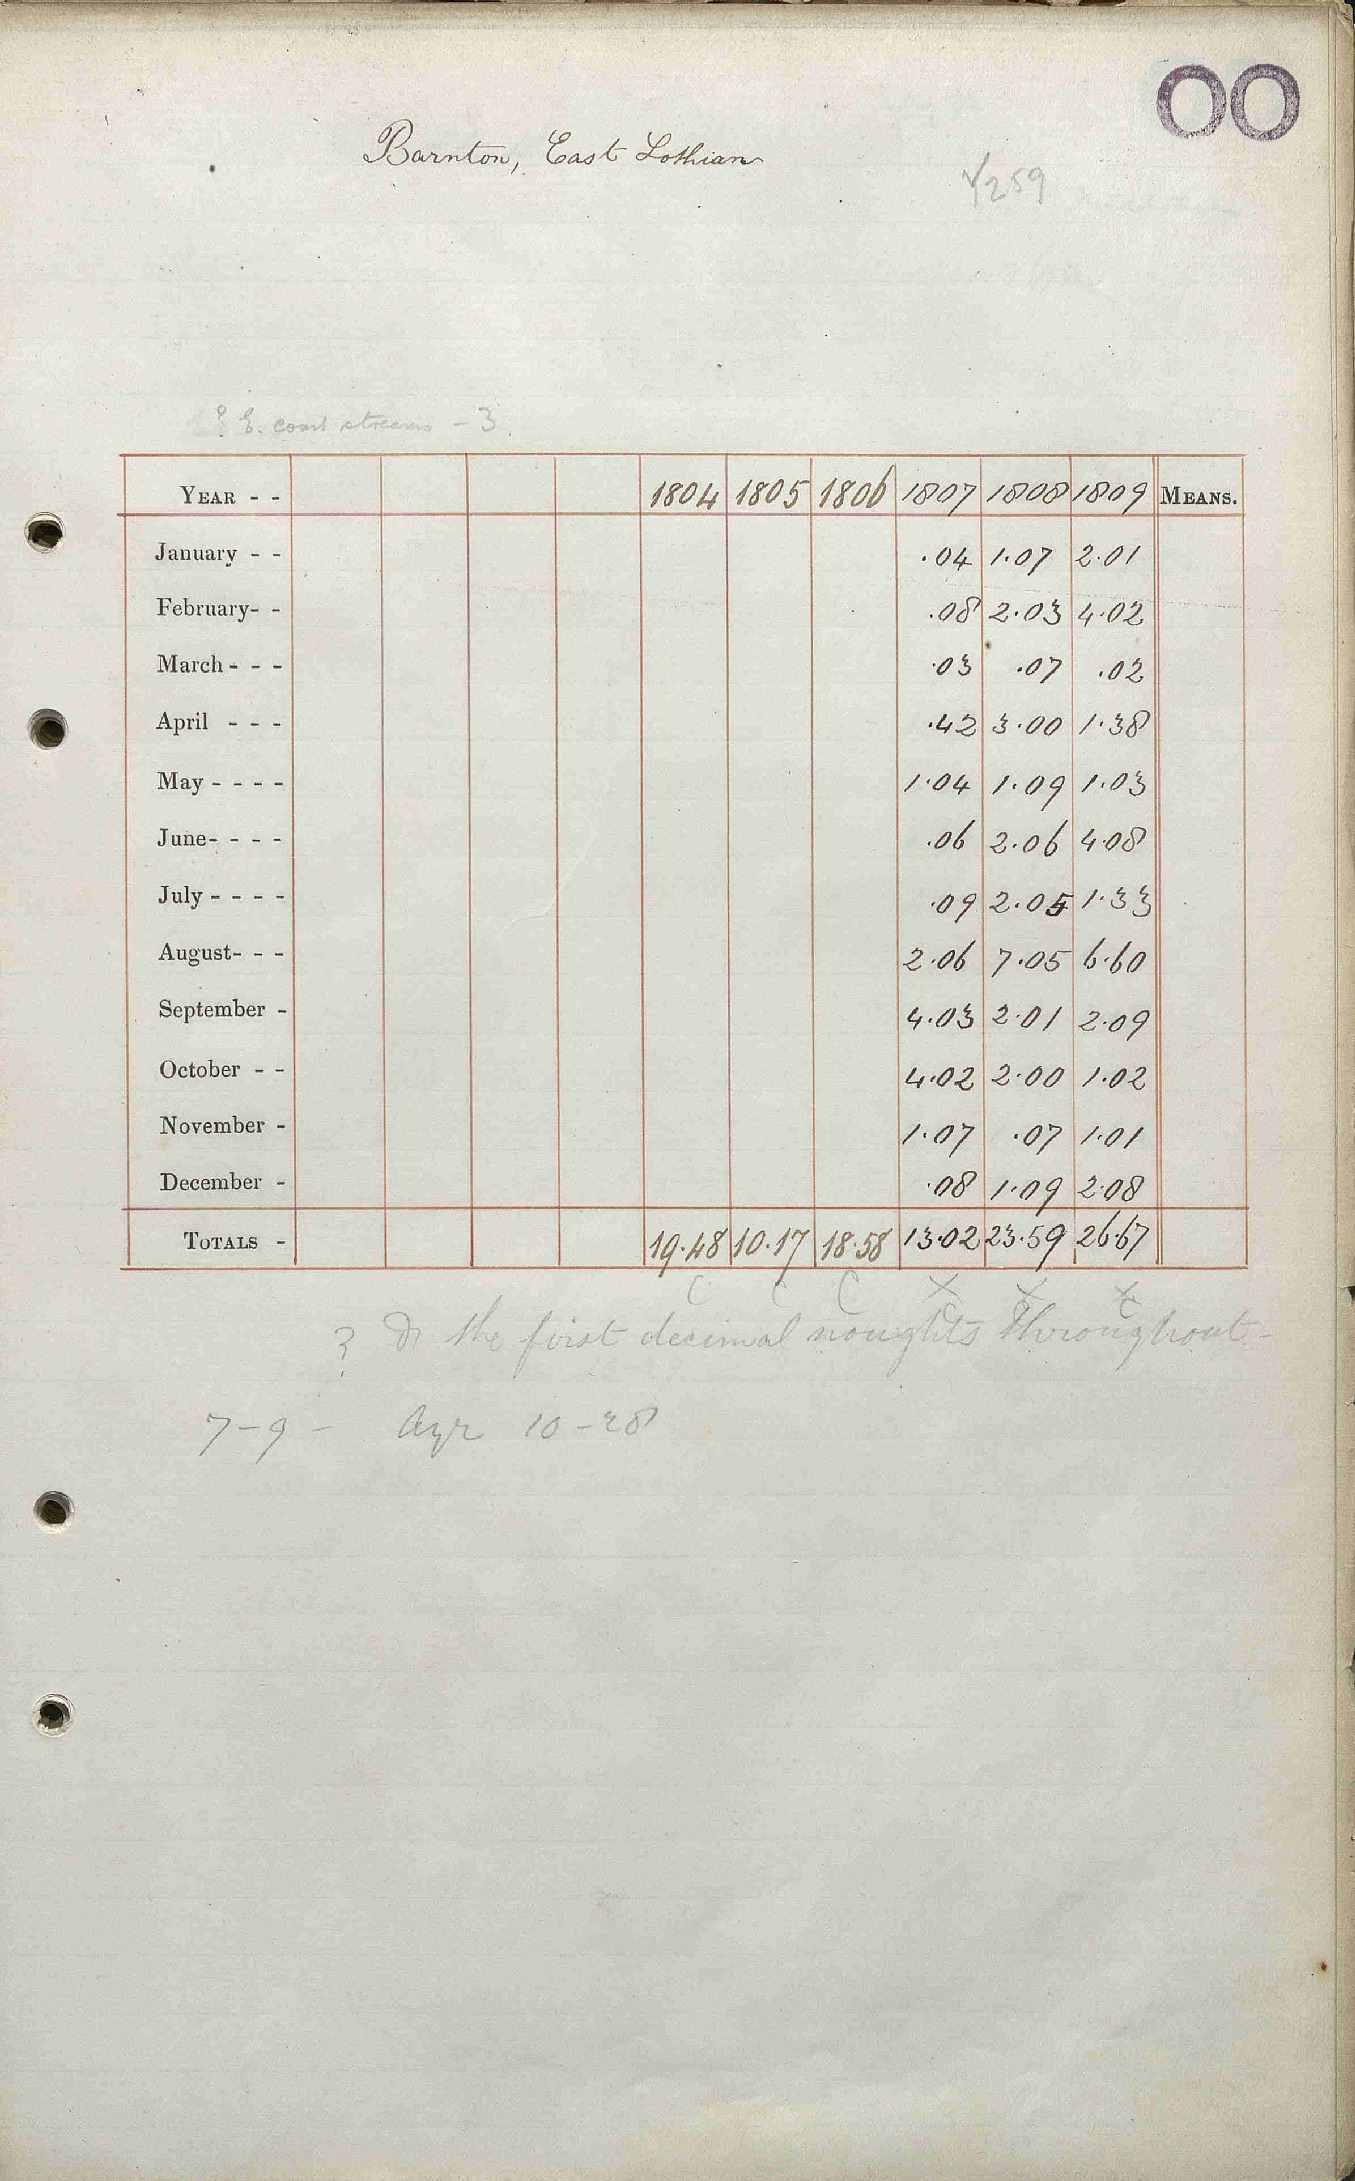 00
Barnton, East Lothian
√259
? E. coast streams - 3.
YEAR - - 1804 1805 1806 1807 1808 1809 MEANS.
January - - .04 1.07 2.01
February- - .08 2.03 4.02
March - - - .03 .07 .02
April - - - .42 3.00 1.38
May - - - - 1.04 1.09 1.03
June- - - - .06 2.06 4.08
July - - - - .09 2.05 1.33
August- - - 2.06 7.05 6.60
September - 4.03 2.01 2.09
October - - 4.02 2.00 1.02
November - 1.07 .07 1.01
December - .08 1.09 2.08
TOTALS - 19.48 10.17 18.58 13.02 23.59 26.67
C C C X X X
C C
? the first decimal noughts throughout -
7-9 - Ayr 10-28